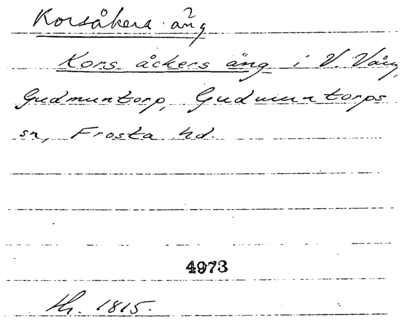 Korsåkers äng
Kors åckers äng i V. Vång,
Gudmuntorp, Gudmuntorps
sn, Frosta hd.
4973
Hr. 1815.